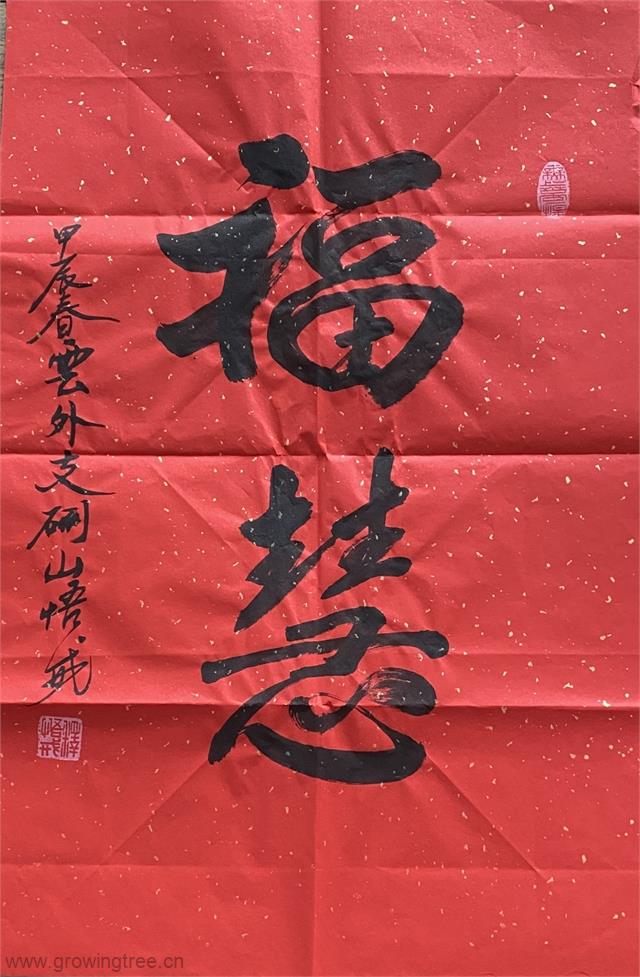 福慧
甲辰春雲外支硎山悟戒
www.growingtree.cn